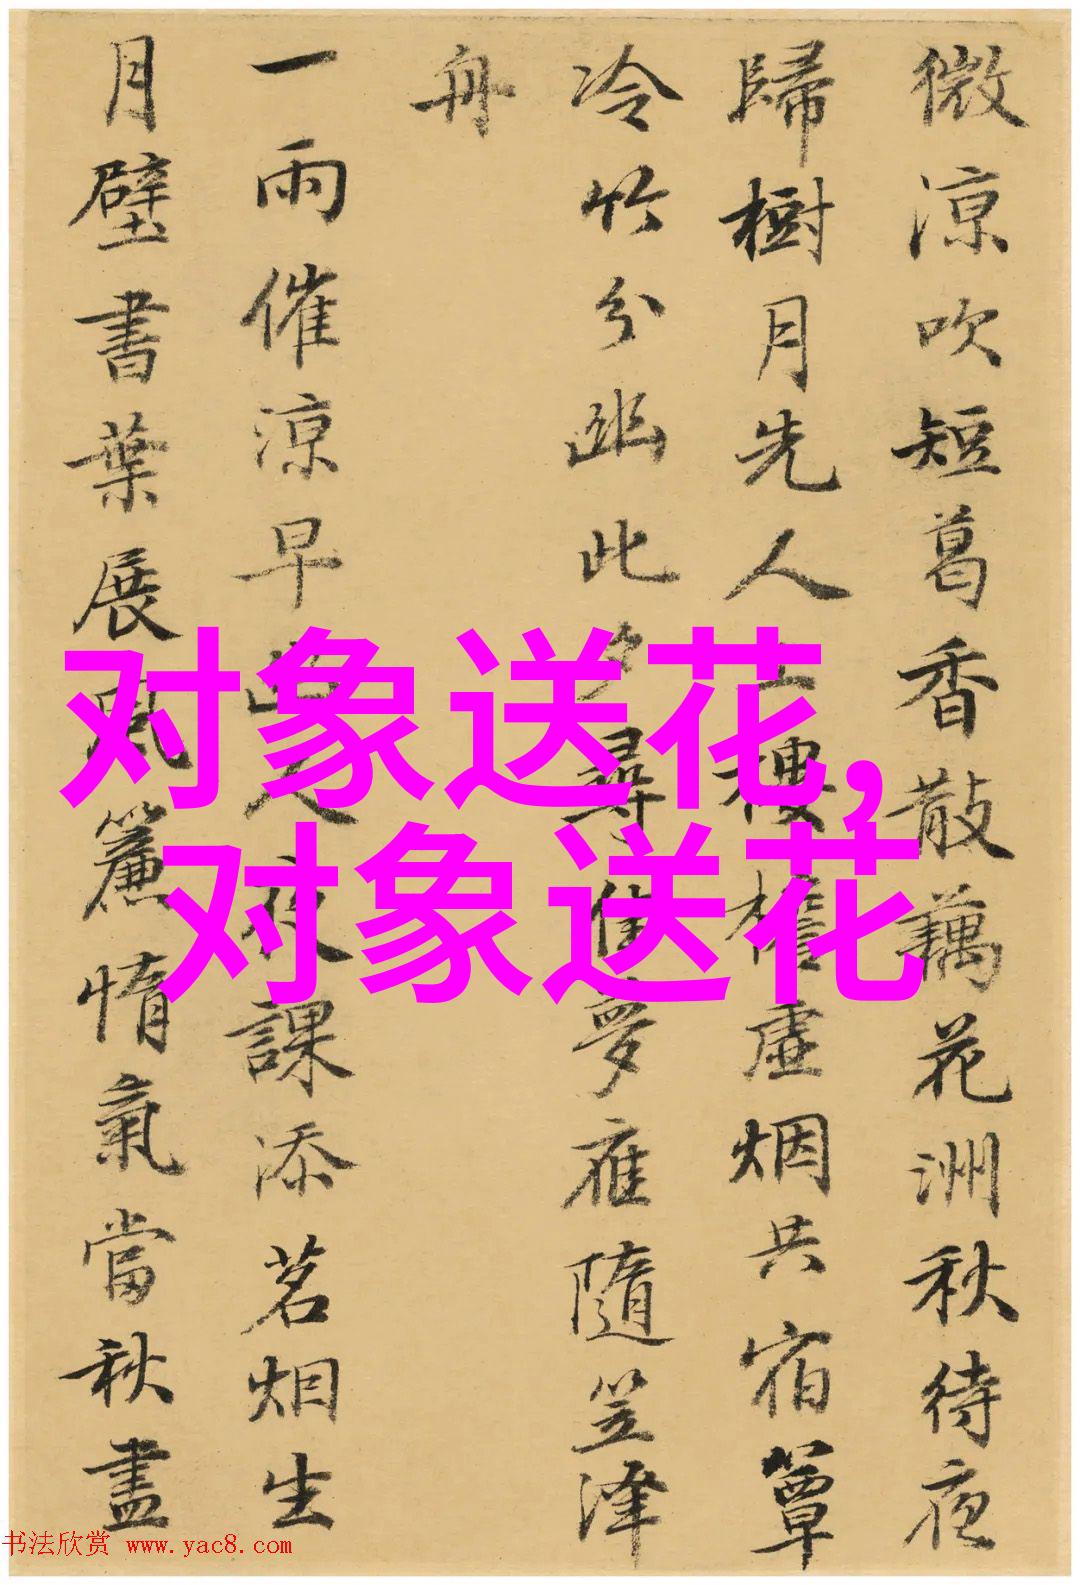 微涼吹短葛香散藕花洲秋待夜
歸樹月先人上樓檐虛烟共宿簟
冷竹分幽此夕尋佳夢應隨笠澤
舟
一雨催涼早幽人夜課添茗烟生
月壁書葉展風簾惰氣當秋盡
对象送花,
对象送花
书法欣赏 www.yac8.com